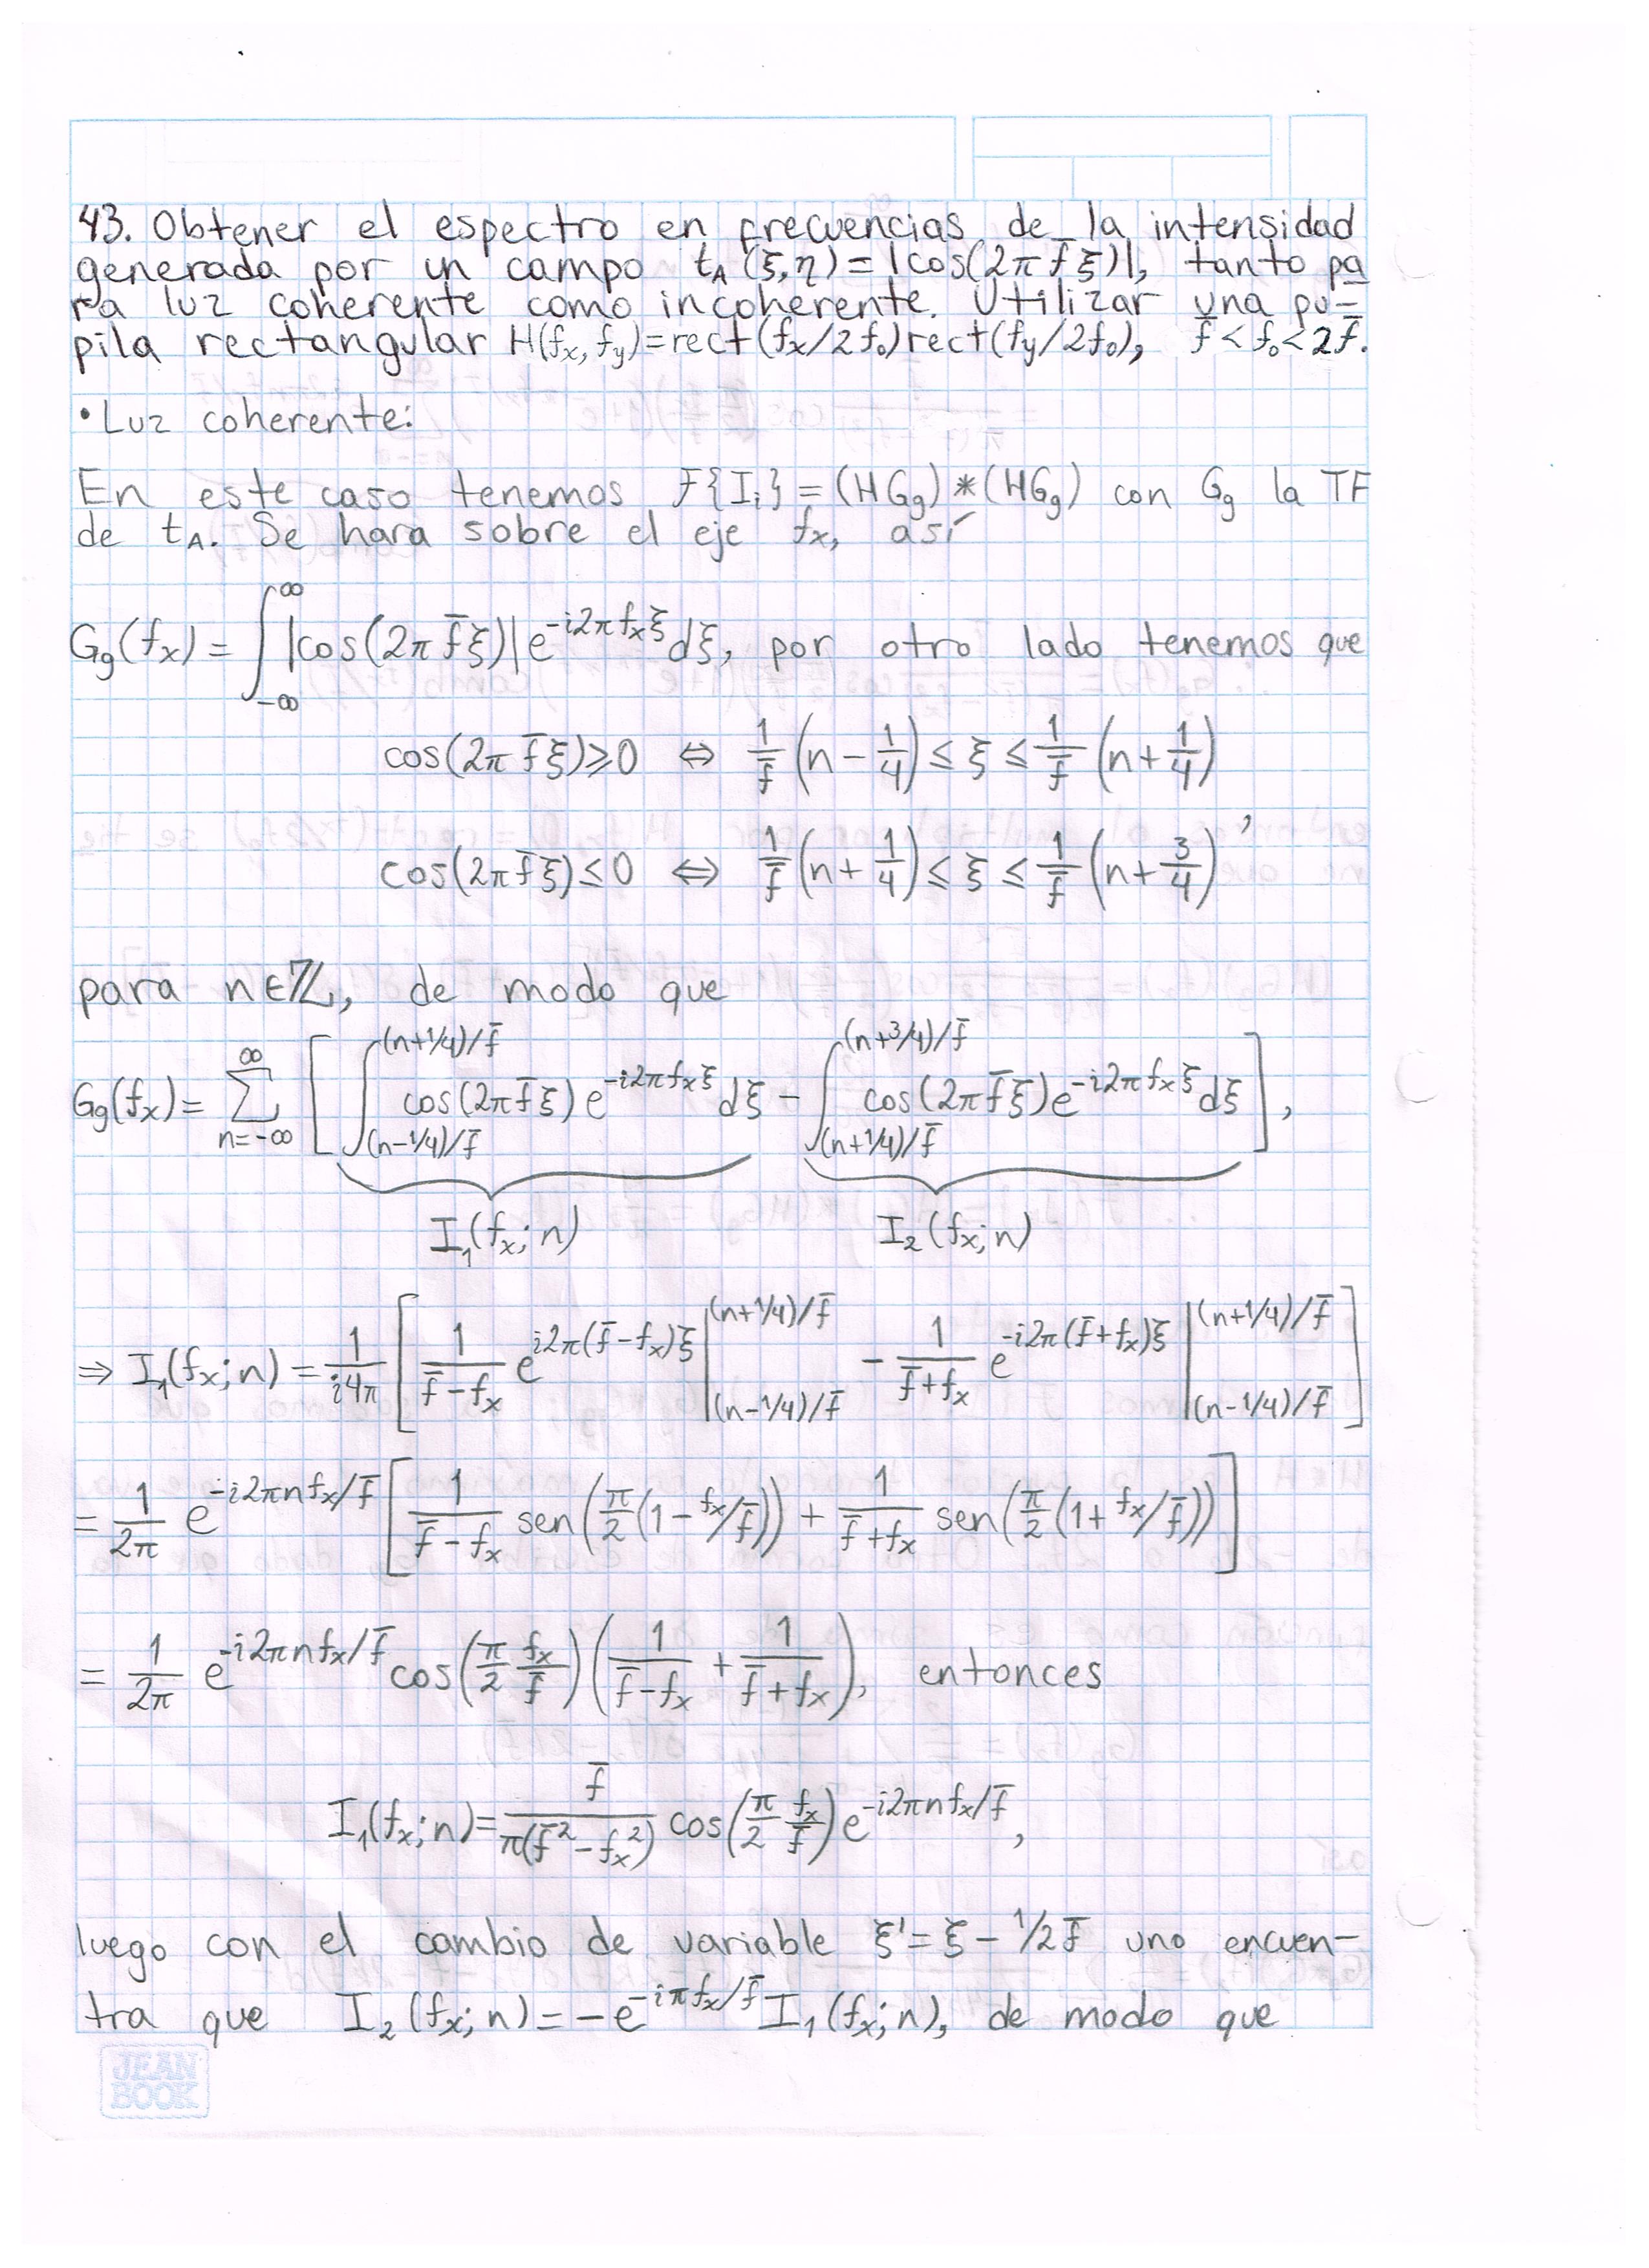 43. Obtener el espectro en frecuencias de la intensidad
generada por un campo t_A(ξ,η)=|cos(2π f̄ ξ)|, tanto pa
ra luz coherente como incoherente. Utilizar una pu-
pila rectangular H(fx, fy)=rect(fx/2f₀)rect(fy/2f₀), f̄ < f₀ < 2f̄.
• Luz coherente:
En este caso tenemos F{I_i} = (HGg)*(HGg) con Gg la TF
de t_A. Se hara sobre el eje fx, así
Gg(fx) = ∫_{-∞}^{∞} |cos(2π f̄ξ)| e^{-i2πfxξ} dξ, por otro lado tenemos que
cos(2π f̄ξ) ≥ 0 ⇔ 1/f̄ (n - 1/4) ≤ ξ ≤ 1/f̄ (n + 1/4)
,
cos(2π f̄ξ) ≤ 0 ⇔ 1/f̄ (n + 1/4) ≤ ξ ≤ 1/f̄ (n + 3/4)
para n∈ℤ, de modo que
Gg(fx) = Σ_{n=-∞}^{∞} [ ∫_{(n-1/4)/f̄}^{(n+1/4)/f̄} cos(2πf̄ξ) e^{-i2πfxξ} dξ - ∫_{(n+1/4)/f̄}^{(n+3/4)/f̄} cos(2πf̄ξ) e^{-i2πfxξ} dξ ],
I₁(fx; n) I₂(fx; n)
⇒ I₁(fx; n) = 1/(i4π) [ 1/(f̄-fx) e^{i2π(f̄-fx)ξ} |_{(n-1/4)/f̄}^{(n+1/4)/f̄} - 1/(f̄+fx) e^{-i2π(f̄+fx)ξ} |_{(n-1/4)/f̄}^{(n+1/4)/f̄} ]
= 1/(2π) e^{-i2πnfx/f̄} [ 1/(f̄-fx) sen(π/2 (1-fx/f̄)) + 1/(f̄+fx) sen(π/2 (1+fx/f̄)) ]
= 1/(2π) e^{-i2πnfx/f̄} cos(π/2 fx/f̄) ( 1/(f̄-fx) + 1/(f̄+fx) ), entonces
I₁(fx; n) = f̄/(π(f̄²-fx²)) cos(π/2 fx/f̄) e^{-i2πnfx/f̄},
luego con el cambio de variable ξ' = ξ - 1/2f̄ uno encuen-
tra que I₂(fx; n) = -e^{-iπfx/f̄} I₁(fx; n), de modo que
JEAN
BOOK